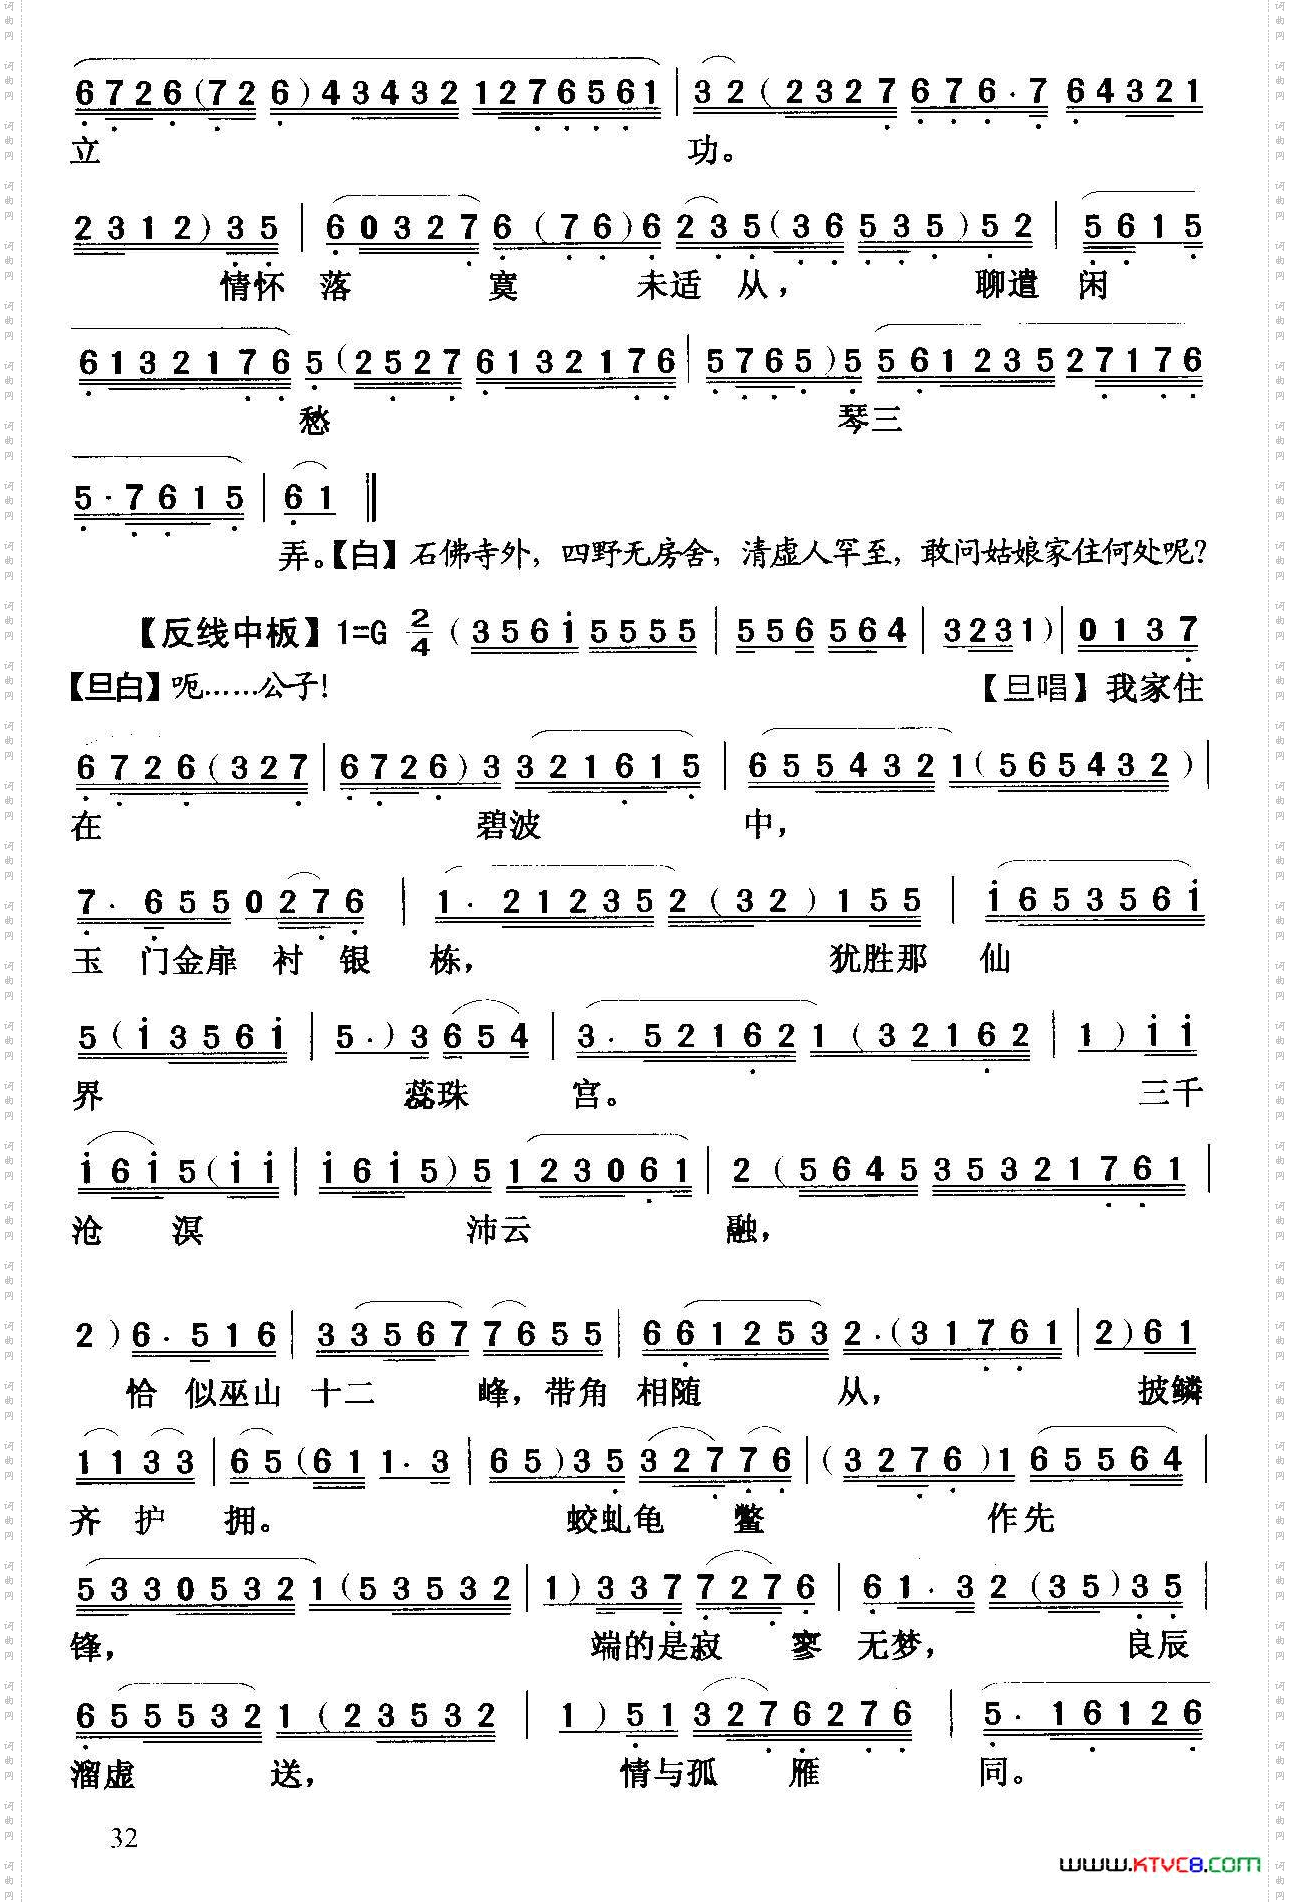 6 7 2 6 (7 2 6) 4 3 4 3 2 1 2 7 6 5 6 1 | 3 2 (2 3 2 7 6 7 6 · 7 6 4 3 2 1
立 功。
2 3 1 2) 3 5 | 6 0 3 2 7 6 (7 6) 6 2 3 5 (3 6 5 3 5) 5 2 | 5 6 1 5
情怀 落 寞 未适 从， 聊遣 闲
6 1 3 2 1 7 6 5 (2 5 2 7 6 1 3 2 1 7 6 | 5 7 6 5) 5 5 6 1 2 3 5 2 7 1 7 6
愁 琴三
5 · 7 6 1 5 | 6 1 ‖
弄。【白】石佛寺外，四野无房舍，清虚人罕至，敢问姑娘家住何处呢？
【反线中板】1=G 2/4 (3 5 6 i 5 5 5 5 | 5 5 6 5 6 4 | 3 2 3 1) | 0 1 3 7
【旦白】呃……公子！ 【旦唱】我家住
6 7 2 6 (3 2 7 | 6 7 2 6) 3 3 2 1 6 1 5 | 6 5 5 4 3 2 1 (5 6 5 4 3 2) |
在 碧波 中，
7 · 6 5 5 0 2 7 6 | 1 · 2 1 2 3 5 2 (3 2) 1 5 5 | i 6 5 3 5 6 i
玉 门金扉 衬 银 栋， 犹胜那 仙
5 (i 3 5 6 i | 5 ·) 3 6 5 4 | 3 · 5 2 1 6 2 1 (3 2 1 6 2 | 1) i i
界 蕊珠 宫。 三千
i 6 i 5 (i i | i 6 i 5) 5 1 2 3 0 6 1 | 2 (5 6 4 5 3 5 3 2 1 7 6 1 |
沧 溟 沛云 融，
2) 6 · 5 1 6 | 3 3 5 6 7 7 6 5 5 | 6 6 1 2 5 3 2 · (3 1 7 6 1 | 2) 6 1
恰 似巫山 十二 峰，带角 相随 从， 披鳞
1 1 3 3 | 6 5 (6 1 1 · 3 | 6 5) 3 5 3 2 7 7 6 | (3 2 7 6) 1 6 5 5 6 4 |
齐 护 拥。 蛟虬龟 鳖 作先
5 3 3 0 5 3 2 1 (5 3 5 3 2 | 1) 3 3 7 7 2 7 6 | 6 1 · 3 2 (3 5) 3 5 |
锋， 端的是寂 寥 无梦， 良辰
6 5 5 5 3 2 1 (2 3 5 3 2 | 1) 5 1 3 2 7 6 2 7 6 | 5 · 1 6 1 2 6
溜虚 送， 情与孤 雁 同。
32
www.KTVC8.com